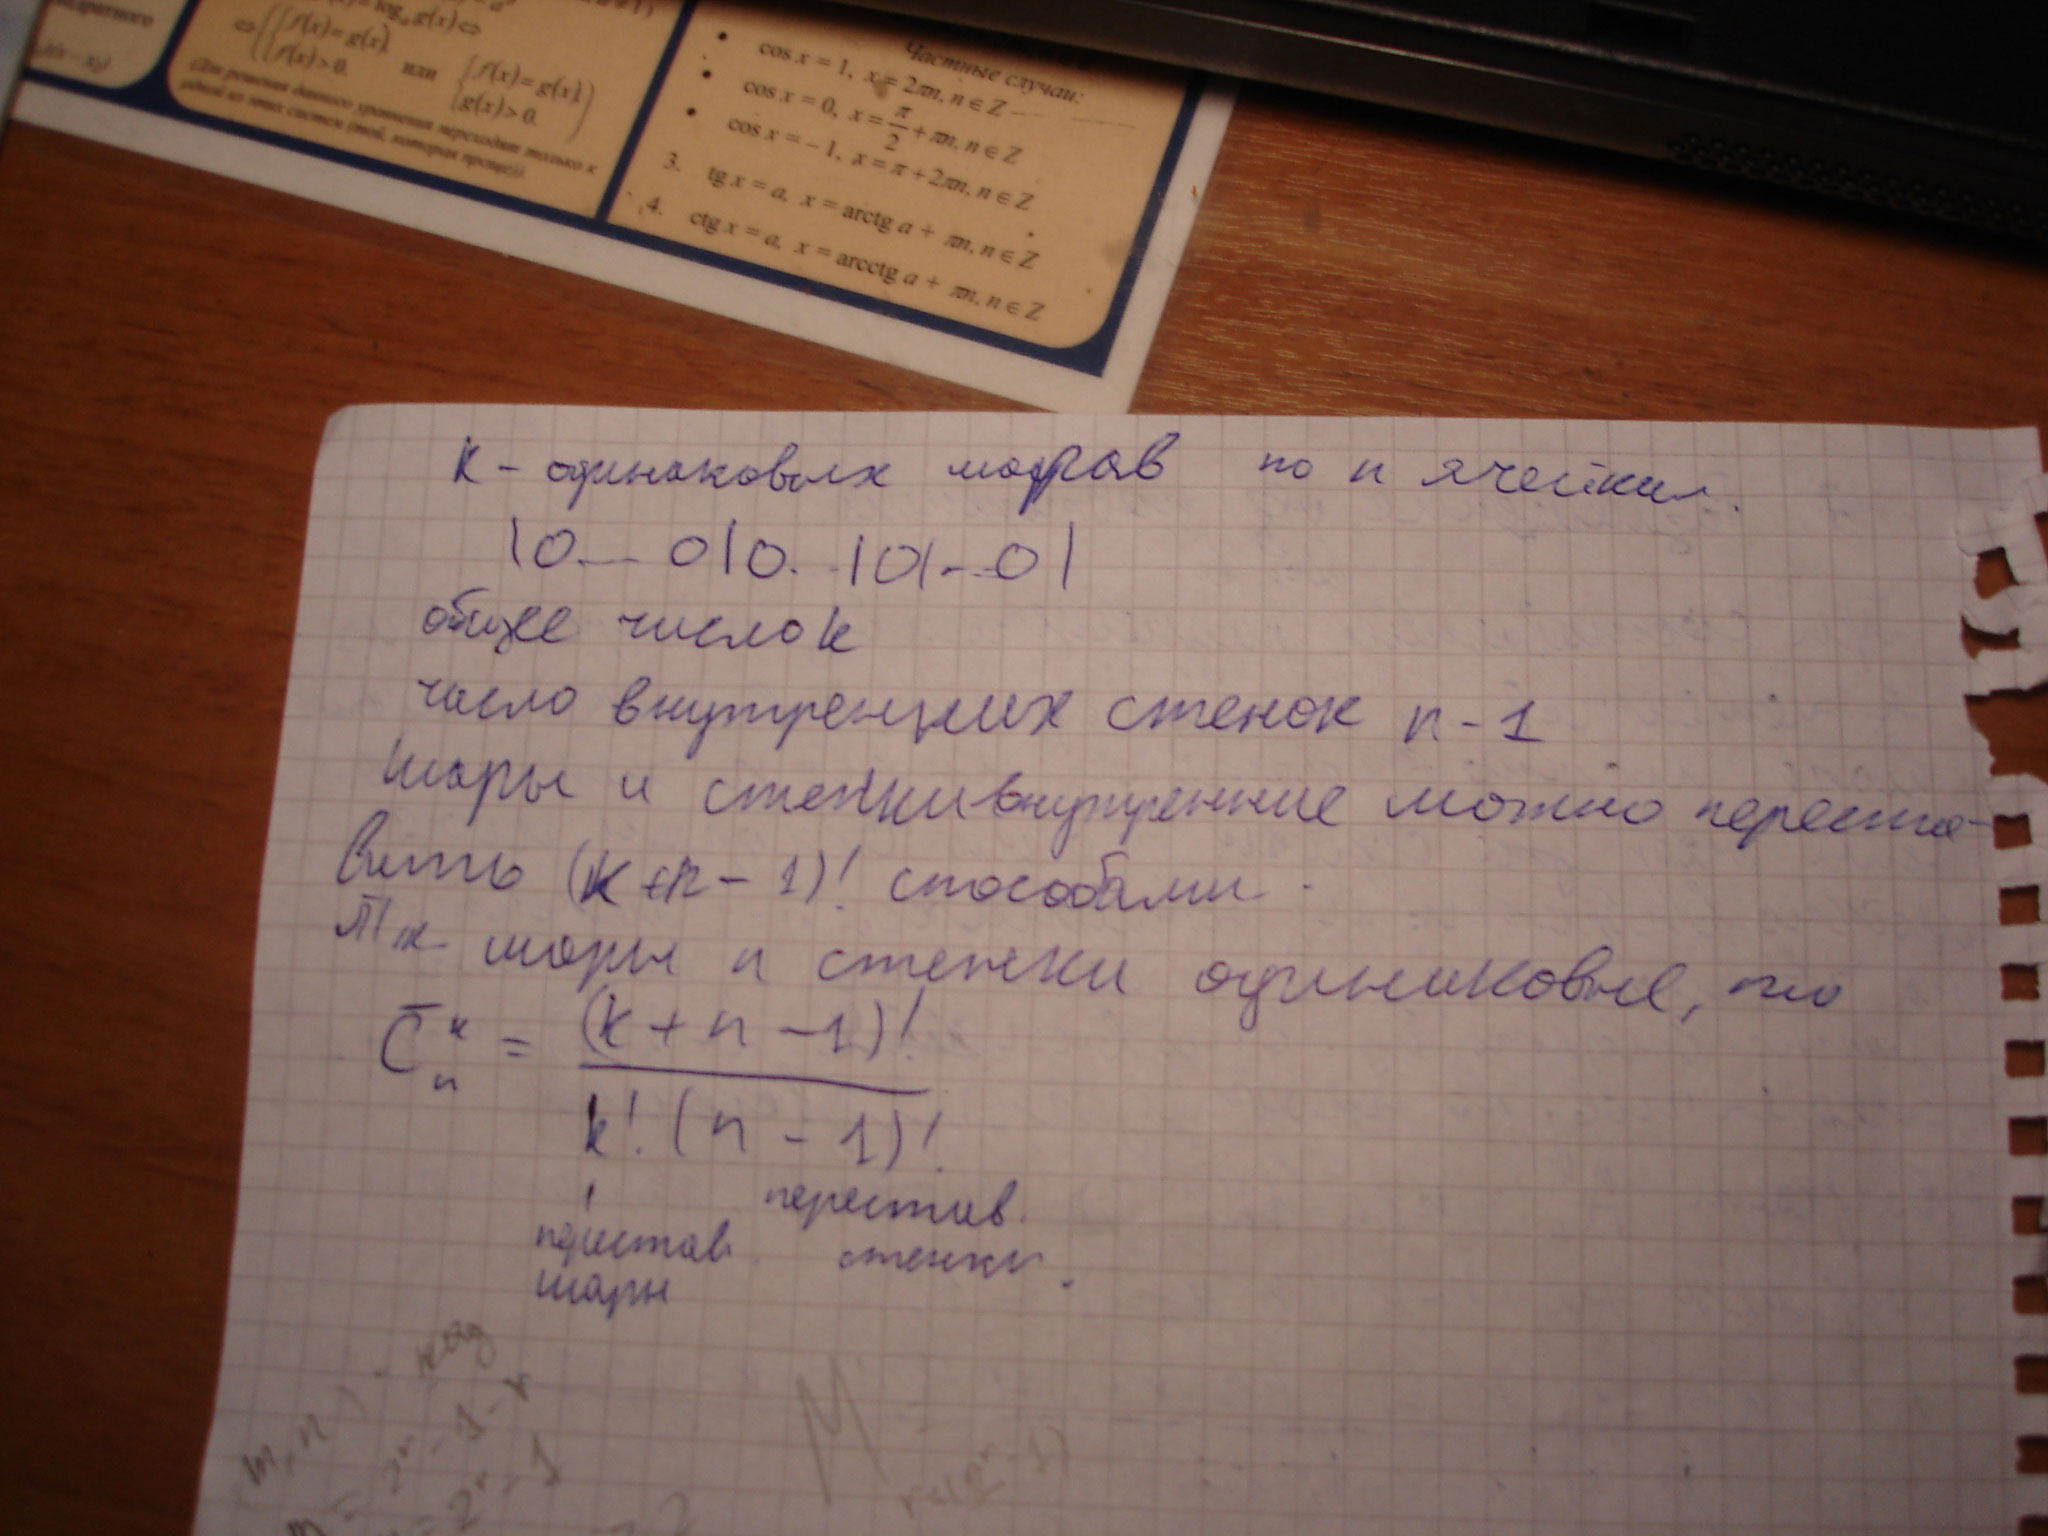 дратного
f(x) = g(x)
f(x) > 0.
или
f(x) = g(x)
g(x) > 0.
(Для решения данного уравнения переходят только к
одной из этих систем (той, которая проще))
Частные случаи:
• cos x = 1, x = 2πn, n ∈ Z
• cos x = 0, x = π/2 + πn, n ∈ Z
• cos x = −1, x = π + 2πn, n ∈ Z
3. tg x = a, x = arctg a + πn, n ∈ Z
4. ctg x = a, x = arcctg a + πn, n ∈ Z
k - одинаковых шаров по n ячейкам.
|0...0|0...|0|...0|
общее число k
число внутренних стенок n-1
шары и стенки внутренние можно переста-
вить (k+n-1)! способами.
Тк шары и стенки одинаковые, то
C̄ⁿₖ = (k+n-1)! / k!(n-1)!
перестав. шары
перестав. стенки.
(m,n) - код
= 2ʳ-1-r
= 2ʳ-1
M =